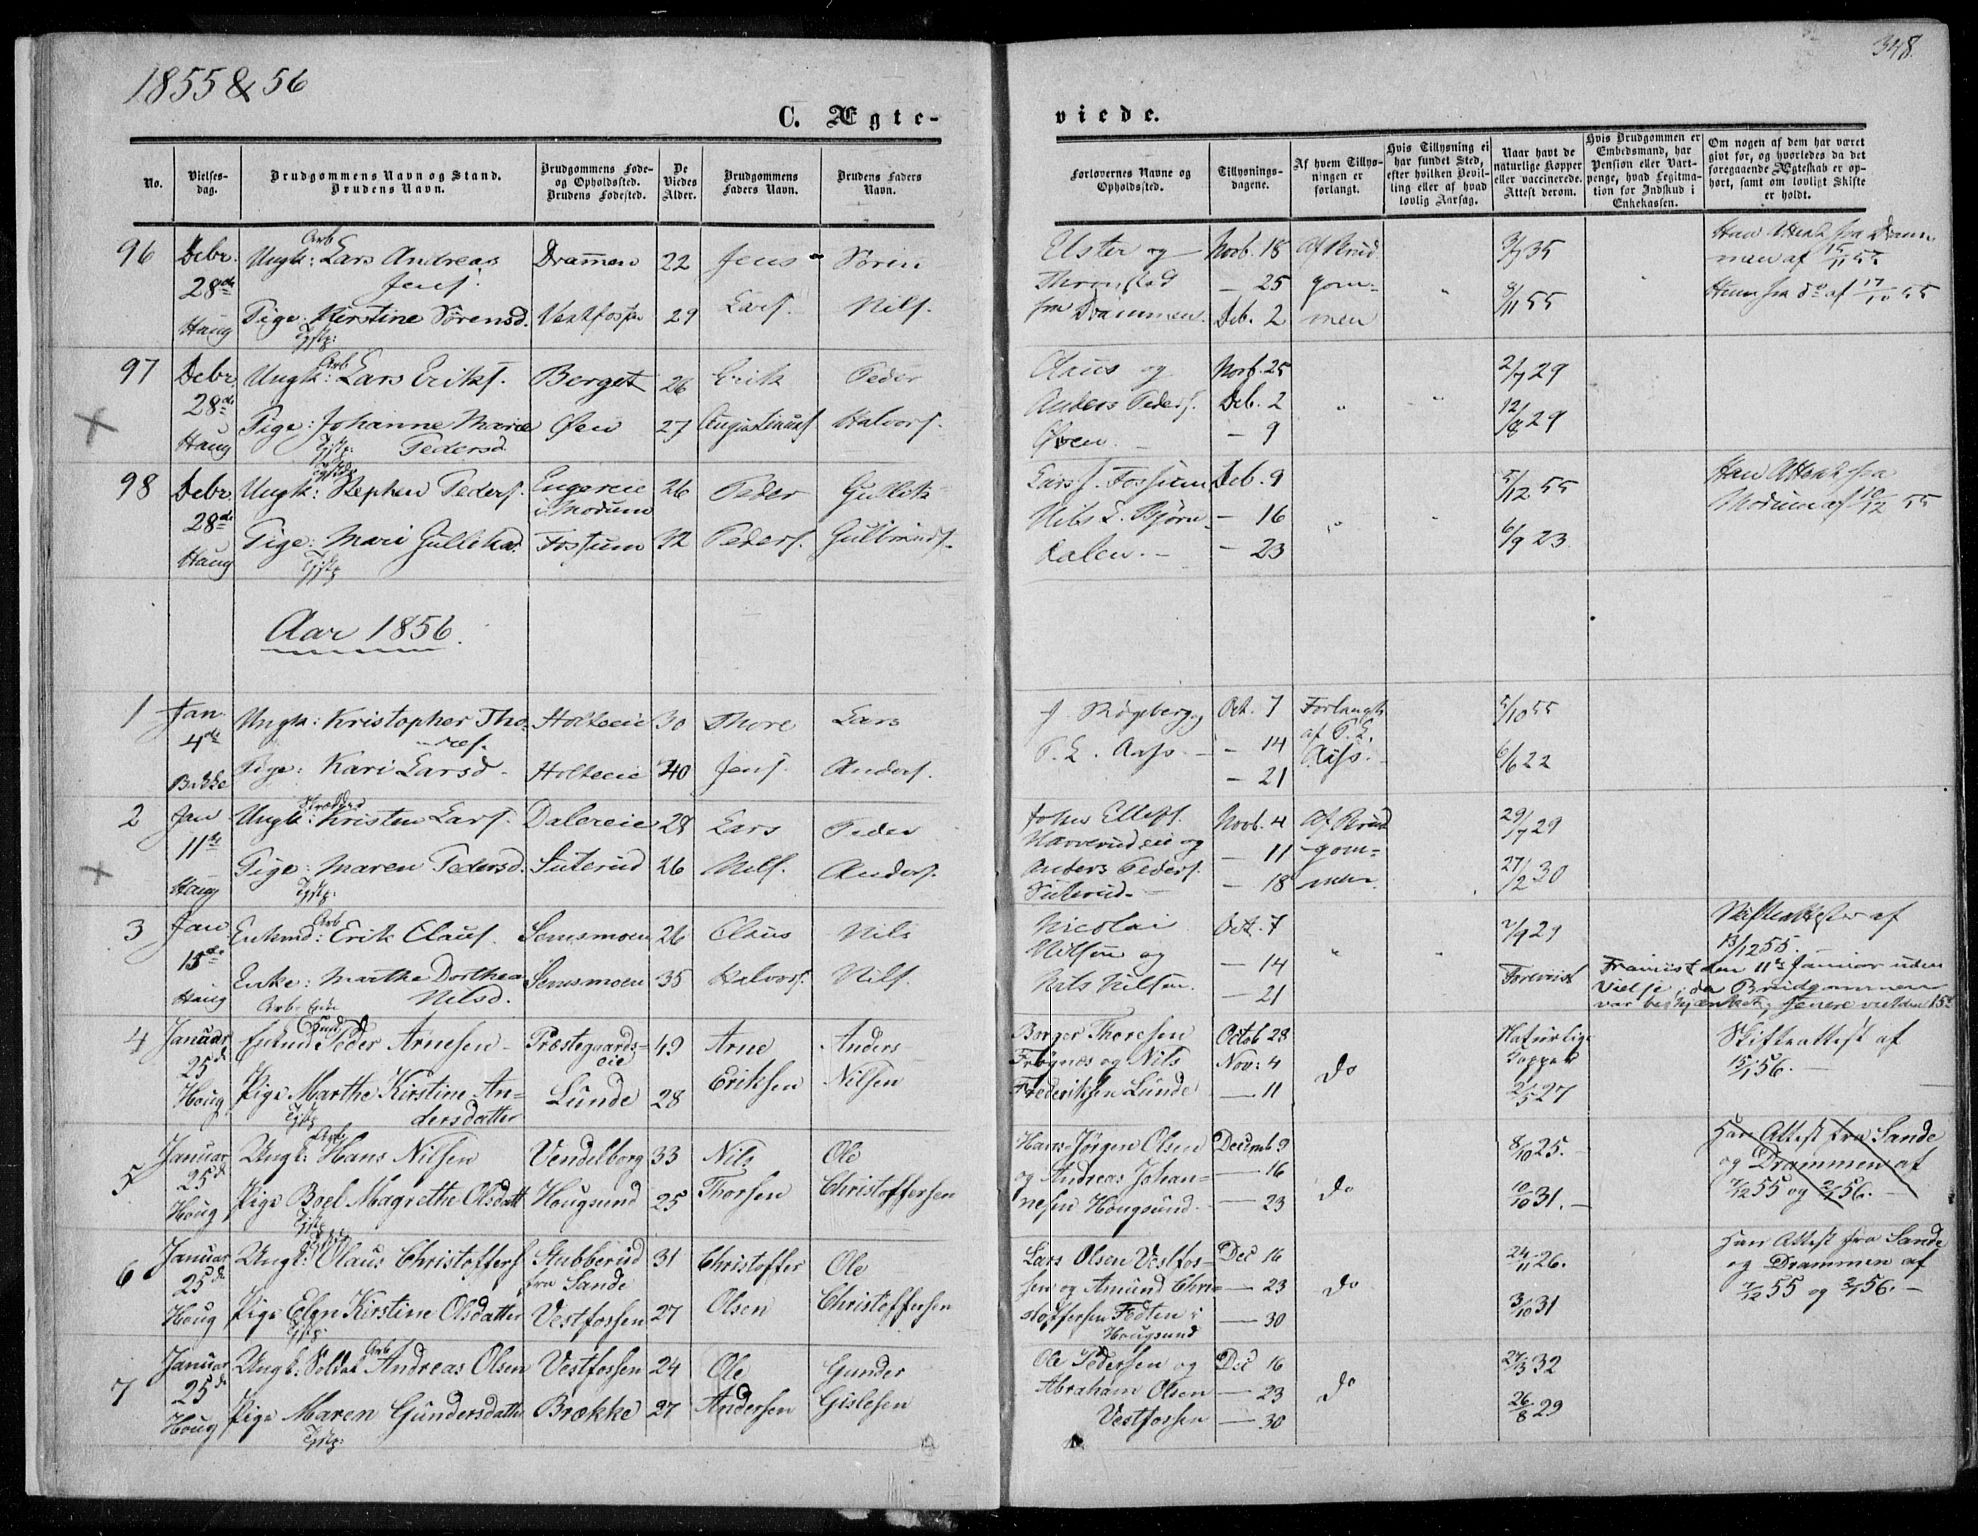 1855 & 56
348.
C. Ægte-
viede.
No.
Vielses-
dag.
Brudgommens Navn og Stand.
Brudens Navn.
Brudgommens Føde-
og Opholdssted.
Brudens Fødested.
De
Viedes
Alder.
Brudgommens
Faders Navn.
Brudens Faders
Navn.
Forlovernes Navne og
Opholdssted.
Tillysnings-
dagene.
Af hvem Tillys-
ningen er
forlangt.
Hvis Tillysning ei
har fundet Sted,
efter hvilken Bevil-
ling eller af hvad
lovlig Aarsag.
Naar havt de
naturlige Kopper
eller vaccinerede.
Attest derom.
Hvis Brudgommen er
Embedsmand, har
Pension eller Vart-
penge, hvad Legitima-
tion for Indskud i
Enkekassen.
Om nogen af dem har været
gift før, og hvorledes da det
foregaaende Ægteskab er op-
hørt, samt om lovligt Skifte
er holdt.
96
Debr.
28de
Haug
Arb
Ungk: Lars Andreas
Jens.
Pige: Kerstine Sørensd.
Tjstp:
Drammen
Vestfossen
22
29
Jens
Lars.
Søren
Nils.
Elster og
Thomstad
fra Drammen.
Novb. 18
— 25
Deb. 2
Af Brud
gom-
men
3/7 35
8/11 55
Han Attest fra Dram
men af 15/11 55
Hun fra do af 17/10 55
97
Debr.
28de
Haug
Arb
Ungk: Lars Eriks.
Pige: Johanne Marie
Tjstp: Pedersd.
Berget
Øen
26
27
Erik
Augustinus.
Peder
Halvors.
Claus og
Anders Peders.
Øen. —
Novb. 25
Deb. 2
— 9
"
"
2/7 29
12/8 29
98
Debr.
28de
Haug
Ungk: Stephen Peders.
Pige: Mari Gulliksd.
Tjstp
Engereie
i Modum
Fossum
26
32
Peder
Peders.
Gullik
Gulbrands.
Lars . Fossum
Nils . Bjørn
dalen. —
Deb. 9
— 16
— 23
"
5/12 55
6/9 23.
Han Attest fra
Modum af 10/12 55
Aar 1856.
1
Jan
4de
Bakke
Ungk: Kristopher Tho-
res.
Pige: Kari Larsd.
Holteeie
Holteeie
30
40
Thore
Jens.
Lars
Anders.
J. Røgeberg og
P. L. Aass. —
Oct. 7
— 14
— 21
Forlangt
af P. L.
Aass.
5/10 55
6/6 22
2
Jan
11te
Haug
Ungk: Kristen Lars.
Pige: Maren Pedersd.
Tjstp:
Dalereie
Suterud
28
26
Lars
Nils.
Peder
Anders.
John Ellefs.
Harverud eie og
Anders Peders.
Suterud. —
Novb. 4
— 11
— 18
Af Brud
gom-
men.
29/7 29
27/2 30
3
Jan
15de
Haug
Arb
Enkmd: Erik Claus.
Enke: Marthe Dorthea
Nilsd.
Semsmoen
Semsmoen
26
35
Claus
Halvors.
Nils
Nils.
Nicolai
Nilsen og
Nils Nilsen.
Oct. 7
— 14
— 21
"
"
7/9 29
Foreviist
Skifteattester af
13/12 55.
Fraviist den 11te Januar uden
Vielse, da Brudgommen
var beskjænket; senere viet den 15de
4
Januar
25de
Houg
Enkmd Peder Arnesen
Pige Marthe Kirstine An-
Tjstp dersdatter
Præstegaards-
eie
Lunde
49
28
Arne
Eriksen
Anders
Nilsen
Borger Thoresen
Frøgnes og Nils
Frederiksen Lunde
Octob 28
Nov: 4
— 11
Do
Naturlige
Kopper
2/5 27
Skifteattest af
15/1 56. —
5
Januar
25de
Houg
Arb
Ungk: Hans Nilsen
Pige Boel Magrethe Olsdatt
Tjstp
Vendelborg
Hougsund
33
25
Nils
Thorsen
Ole
Christoffersen
Hans Jørgen Olsen
og Andreas Johan-
nesen Hougsund. —
Decemb 9
— 16
— 23
Do
8/10 25. —
10/10 31. —
Han Attest fra Sande
og Drammen af
7/12 55 og 2/1 56. —
6
Januar
25de
Houg
Ungk: Olaus Christoffers
Pige Elen Kirstine Olsdatter
Tjstp:
Stubberud
fra Sande
Vestfossen
31
27
Christoffer
Olsen
Ole
Christoffersen
Lars Olsen Vestfos-
sen og Amund Chri-
stoffersen Fedten i
Hougsund
Dec 16
— 23
— 30
Do
24/11 26.
3/10 31
Han Attest fra Sande
og Drammen af
7/12 55 og 2/1 56. —
7
Januar
25de
Houg
Arb
Ungk: Soldat Andreas Olsen
Pige Maren Gundersdatter
Tjstp:
Vestfossen
Brække
24
27
Ole
Andersen
Gunder
Gislesen
Ole Pedersen og
Abraham Olsen
Vestfossen
Dec 16
— 23
— 30
Do
27/3 32
26/8 29